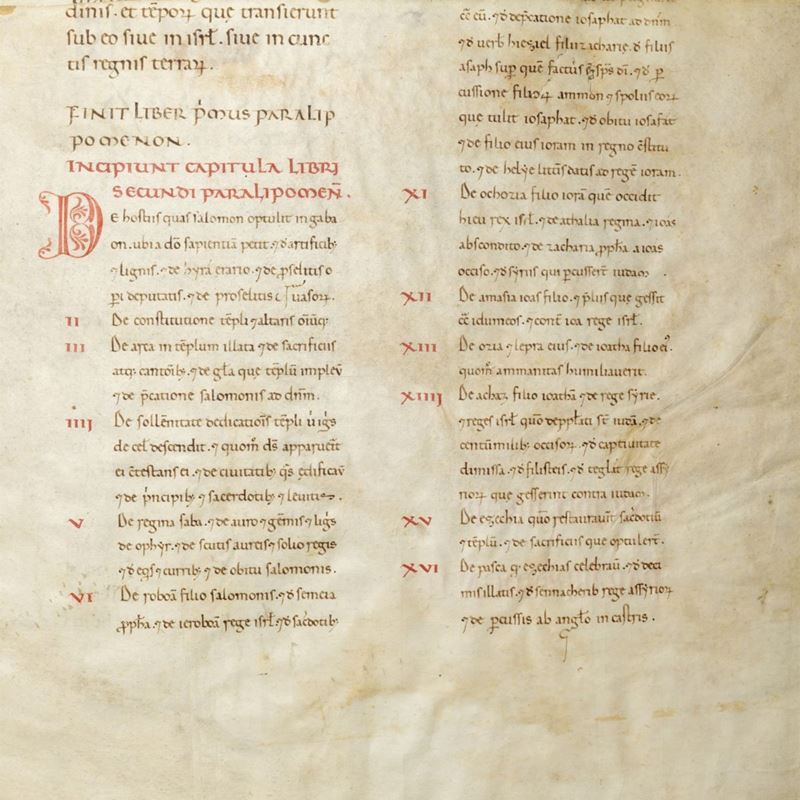 dinis. et tēporꝝ que transierunt
sub eo siue in isrł. siue in cunc
tis regnis terrarꝝ.
FINIT LIBER PꝛIMUS PARALIP
POMENON.
INCIPIUNT CAPITULA LIBRI
SECUNDI PARALIPOMEN̄.
De hostiis quas salomon optulit in gaba
on. ubi a dō sapientiā petit. ⁊ d artificib;
⁊ lignis. ⁊ de hyrā erario. ⁊ de pselitis o
ꝑi deputatis. ⁊ de proselitis
II De constitutione tēpli ⁊ altaris
III De arca in tēplum illata ⁊ de sacrificiis
atq; cantorib; ⁊ de gła que tēplū impleu̅
⁊ de p̄catione salomonis ad dn̄m.
IIII De sollēnitate dedicatiōis tēpli ignis
de cel descendit. ⁊ quom̄ ds̄ apparuer̄t
ei ⁊ de ciuitatib; qs̄ edificau̅
⁊ de p̄ncipib; ⁊ sacerdotib; ⁊ leuitis.
V De regina saba. ⁊ de auro ⁊ gēmis ⁊ ligs̄
de ophyr. ⁊ de scutis aureis ⁊ solio regis
⁊ d eqs̄ ⁊ currib; ⁊ de obitu salomonis.
VI De roboā filio salomonis. ⁊ d semeia
ꝓpħa. ⁊ de ieroboā rege isrł. ⁊ d sac̄dotib;
cē eū. ⁊ d dep̄catione iosaphat ad dn̄m
⁊ d uerb hieziel filii zacharie. d filiis
asaph sup quē factus ē sps̄ dī. ⁊ d ꝑ
cussione filiorꝝ ammon ⁊ spoliis eorꝝ
que tulit iosaphat. ⁊ d obitu iosafat
⁊ de filio eius ioram in regno c̄stitu
to. ⁊ de helye litt̄is datis ad regē ioram.
XI De ochozia filio iorā quē occidit
hieu rex isrł. ⁊ de athalia regina. ⁊ ioas
abscondito. ⁊ de zacharia ꝓpħa a ioas
occiso. ⁊ d syriis qui ꝑcusser̄t iudam.
XII De amasia ioas filio. ⁊ p̄liis que gessit
cc̄ idumeos. ⁊ cont̄ ioa rege isrł.
XIII De ozia ⁊ lepra eius. ⁊ de ioatha filio ei'.
quom̄ ammanitas humiliauerit.
XIIII De achaz filio ioathā ⁊ de rege syrie.
⁊ reges isrł quō dep̄p̄lati st̄ iudā. ⁊ de
centū milib; occisorꝝ. ⁊ d captiuitate
dimissa. ⁊ d filisteis. ⁊ d teglat rege assy
riorꝝ que gesserint contra iudam.
XV De ezechia quō restaurauit sac̄dotiū
⁊ tēplū. ⁊ de sacrificiis que optuler̄t.
XVI De pasca q; ezechias celebrauit. ⁊ d deci
mis illatis. ⁊ d sennacherib rege assyriorꝝ
⁊ de ꝑcussis ab angło in castris.